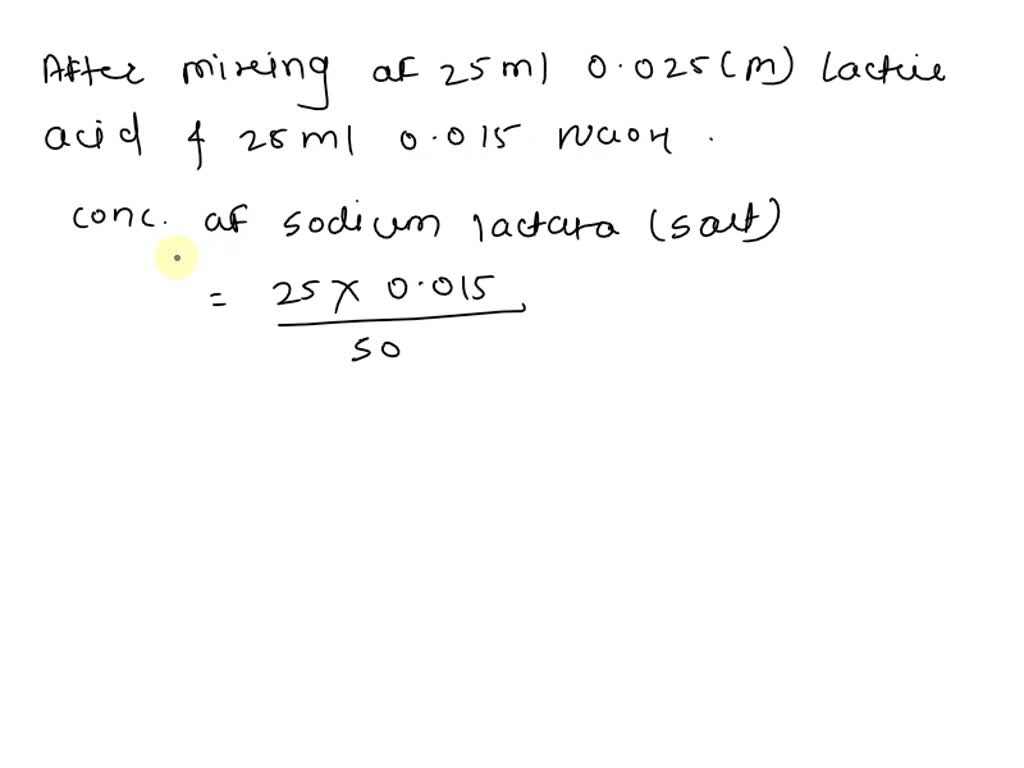 After mixing of 25 ml 0.025 (M) Lactic
acid & 25 ml 0.015 NaOH .
conc. of sodium lactara (salt)
= 25 × 0.015
50